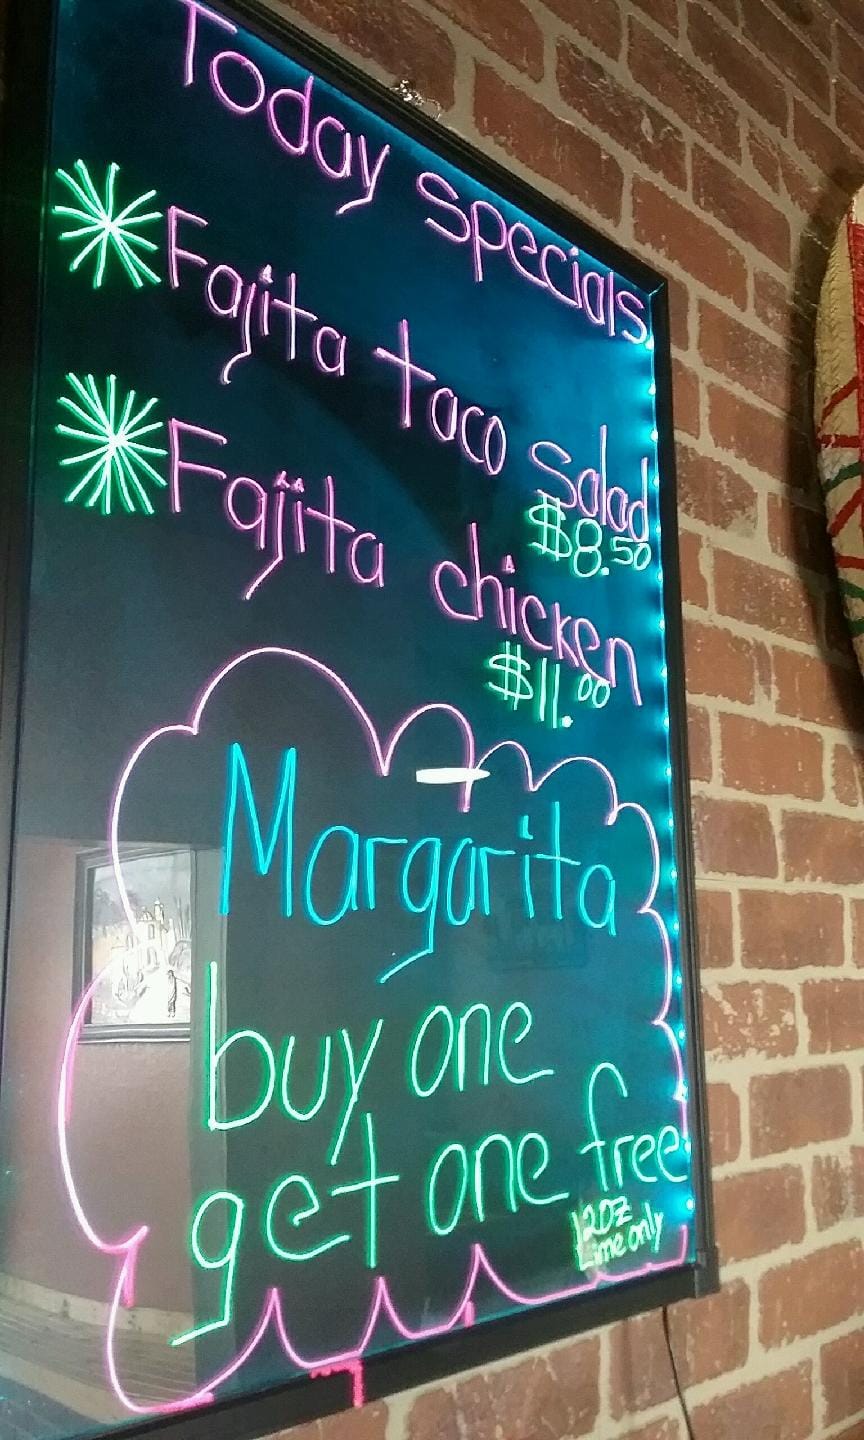 Today specials
Fajita taco salad
$8.50
Fajita chicken
$11.00
Margarita
buy one
get one free
12oz
Lime only